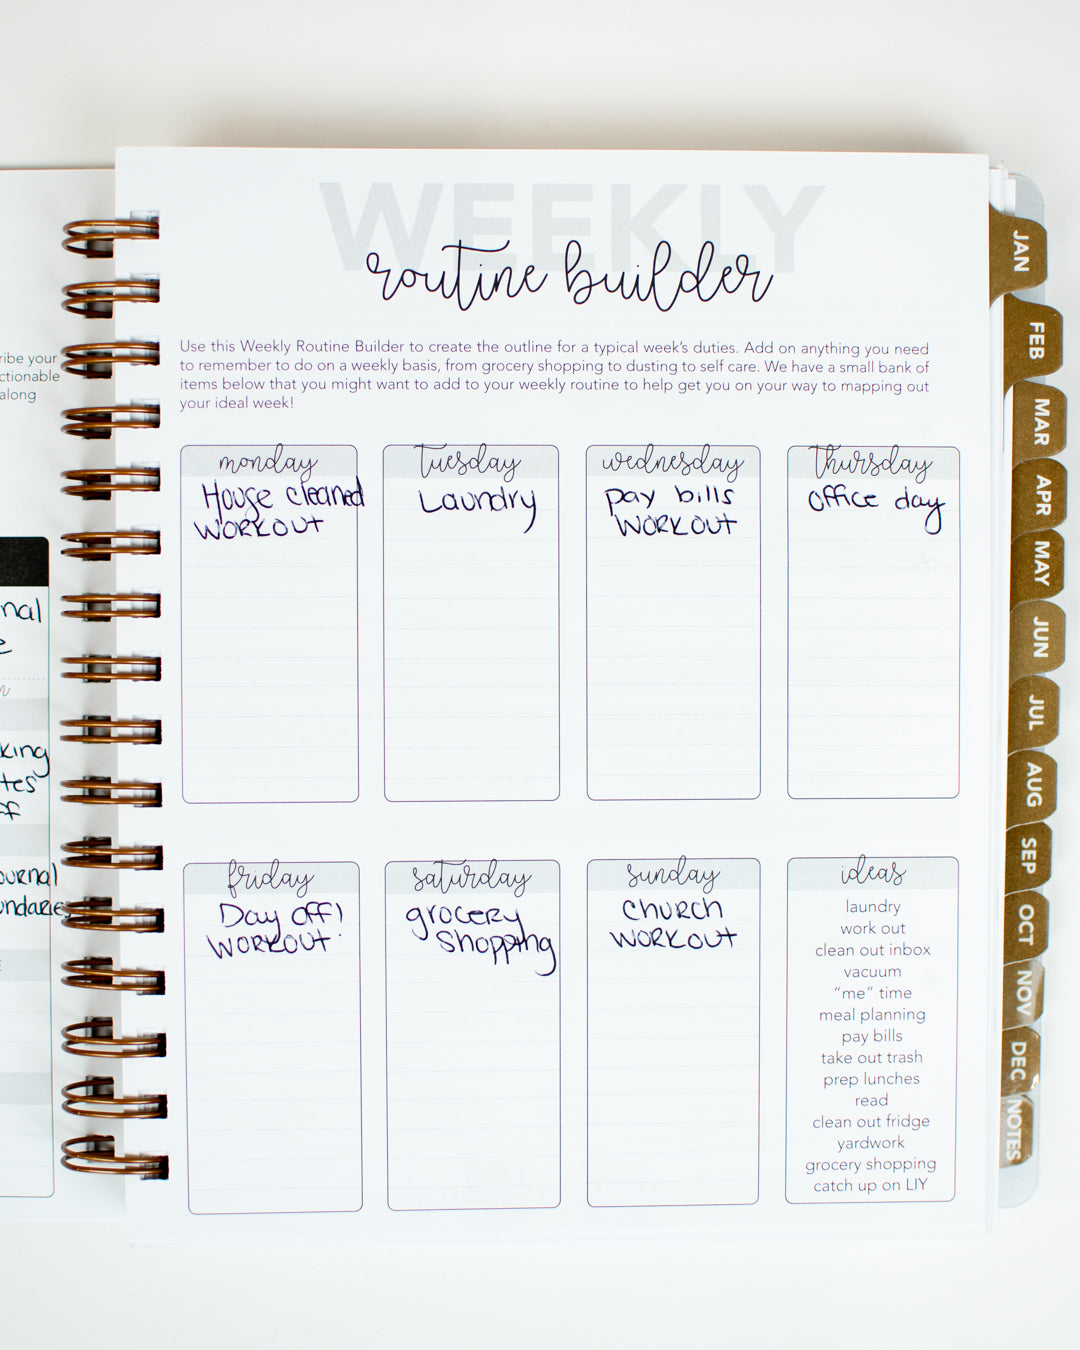 WEEKLY
routine builder
Use this Weekly Routine Builder to create the outline for a typical week's duties. Add on anything you need
to remember to do on a weekly basis, from grocery shopping to dusting to self care. We have a small bank of
items below that you might want to add to your weekly routine to help get you on your way to mapping out
your ideal week!
monday
House cleaned
WORKOUT
tuesday
Laundry
wednesday
pay bills
WORKOUT
thursday
office day
friday
Day off!
WORKOUT
saturday
grocery
shopping
sunday
CHURCH
WORKOUT
ideas
laundry
work out
clean out inbox
vacuum
"me" time
meal planning
pay bills
take out trash
prep lunches
read
clean out fridge
yardwork
grocery shopping
catch up on LIY
JAN
FEB
MAR
APR
MAY
JUN
JUL
AUG
SEP
OCT
NOV
DEC
NOTES
your
along